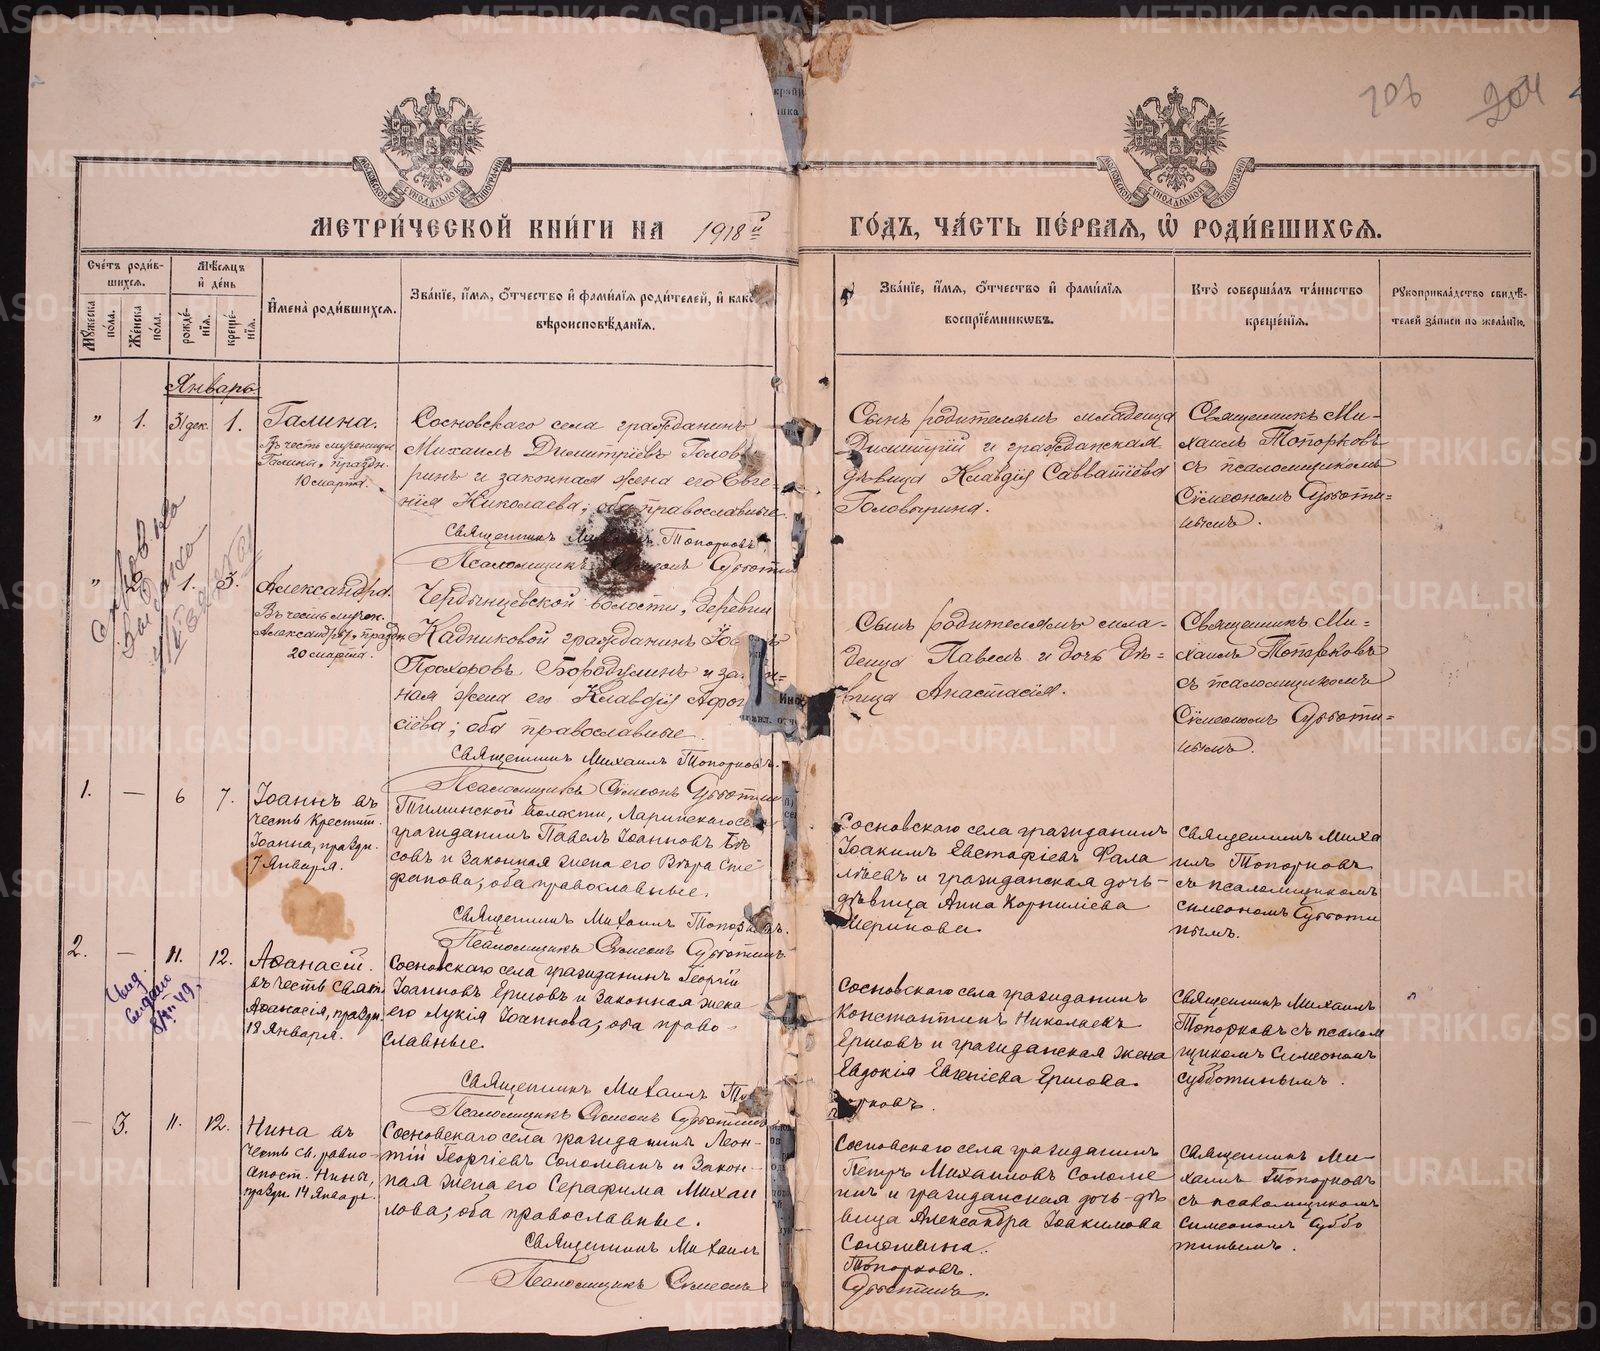 METRIKI.GASO-URAL.RU
204
МЕТРИ́ЧЕСКОЙ КНИ́ГИ НА 1918й ГО́ДЪ, ЧА́СТЬ ПЕ́РВАЯ, Ѡ РОДИ́ВШИХСЯ.
Сче́тъ роди́вшихся.
Му́жеска по́ла.
Же́нска по́ла.
Мѣ́сяцъ и҆ де́нь
рожде́нїя.
креще́нїя.
И҆мена̀ роди́вшихся.
Зва́нїе, и҆́мя, ѻ҆́тчество и҆ фами́лїя роди́телей, и҆ како
вѣроисповѣ́данїя.
Зва́нїе, и҆́мя, ѻ҆́тчество и҆ фами́лїя
воспрїе́мниковъ.
Кто̀ соверша́лъ та́инство
креще́нїя.
Рукоприкла́дство свидѣ́-
телей за́писи по жела́нїю.
Январь
" 1. 31 дек. 1.
Галина.
Въ честь мученицы
Галины, праздн.
10 марта.
Сосновскаго села гражданинъ
Михаилъ Димитріевъ Голов
ринъ и законная жена его Евге-
нія Николаева; оба православные.
Священникъ Михаилъ Топорковъ
Псаломщикъ Симеонъ Субботин
Сынъ родителямъ младенца
Димитрій и гражданская
дѣвица Клавдія Савватіева
Головырина.
Священникъ Ми-
хаилъ Топорковъ
съ псаломщикомъ
Симеономъ Субботи-
нымъ.
" 1. 3.
Александра.
Въ честь мучен.
Александры, праздн.
20 марта.
Чердынцевской волости, деревни
Кадниковой гражданинъ Іоа
Прохоровъ Бородулинъ и за
ная жена его Клавдія Афон
сіева; оба православные.
Священникъ Михаилъ Топорковъ.
Псаломщикъ Симеонъ Субботин
Сынъ родителямъ мла-
денца Павелъ и дочь дѣ-
вица Анастасія.
Священникъ Ми-
хаилъ Топорковъ
съ псаломщикомъ
Симеономъ Субботи-
нымъ.
1. — 6 7.
Іоаннъ въ
честь Крестит.
Іоанна, праздн.
7 Января.
волости, Ларинскаго се
гражданинъ Павелъ Іоанновъ
совъ и законная жена его Вѣра Сте
фанова; оба православные.
Священникъ Михаилъ Топорковъ.
Псаломщикъ Симеонъ Субботинъ
Сосновскаго села гражданинъ
Іоакимъ Евстафіевъ Фала
лѣевъ и гражданская дочь-
дѣвица Анна Корниліева
Меринова.
Священникъ Миха
илъ Топорковъ
съ псаломщикомъ
Симеономъ Субботи
нымъ.
2. — 11. 12.
Аѳанасій.
въ честь Свят.
Аѳанасія, праздн.
18 Января.
Сосновскаго села гражданинъ Георгій
Іоанновъ Ершовъ и законная жена
его Лукія Іоаннова; оба право-
славные.
Священникъ Михаилъ Топ
орковъ.
Псаломщикъ Симеонъ Субботинъ
Сосновскаго села гражданинъ
Константинъ Николаевъ
Ершовъ и гражданская жена
Евдокія Евгеніева Ершова.
Священникъ Михаилъ
Топорковъ съ псалом
щикомъ Симеономъ
Субботинымъ.
— 3. 11. 12.
Нина въ
честь св. равно-
апост. Нины,
праздн. 14 Января.
Сосновскаго села гражданинъ Леон-
тій Георгіевъ Соломеинъ и закон-
ная жена его Серафима Михаи
лова; оба православные.
Священникъ Михаилъ
Топорковъ.
Псаломщикъ Симеонъ
Субботинъ.
Сосновскаго села гражданинъ
Петръ Михаиловъ Соломе
инъ и гражданская дочь-дѣ
вица Александра Іоакимова
Соломеина.
Священникъ Ми-
хаилъ Топорковъ
съ псаломщикомъ
Симеономъ Суббо
тинымъ.